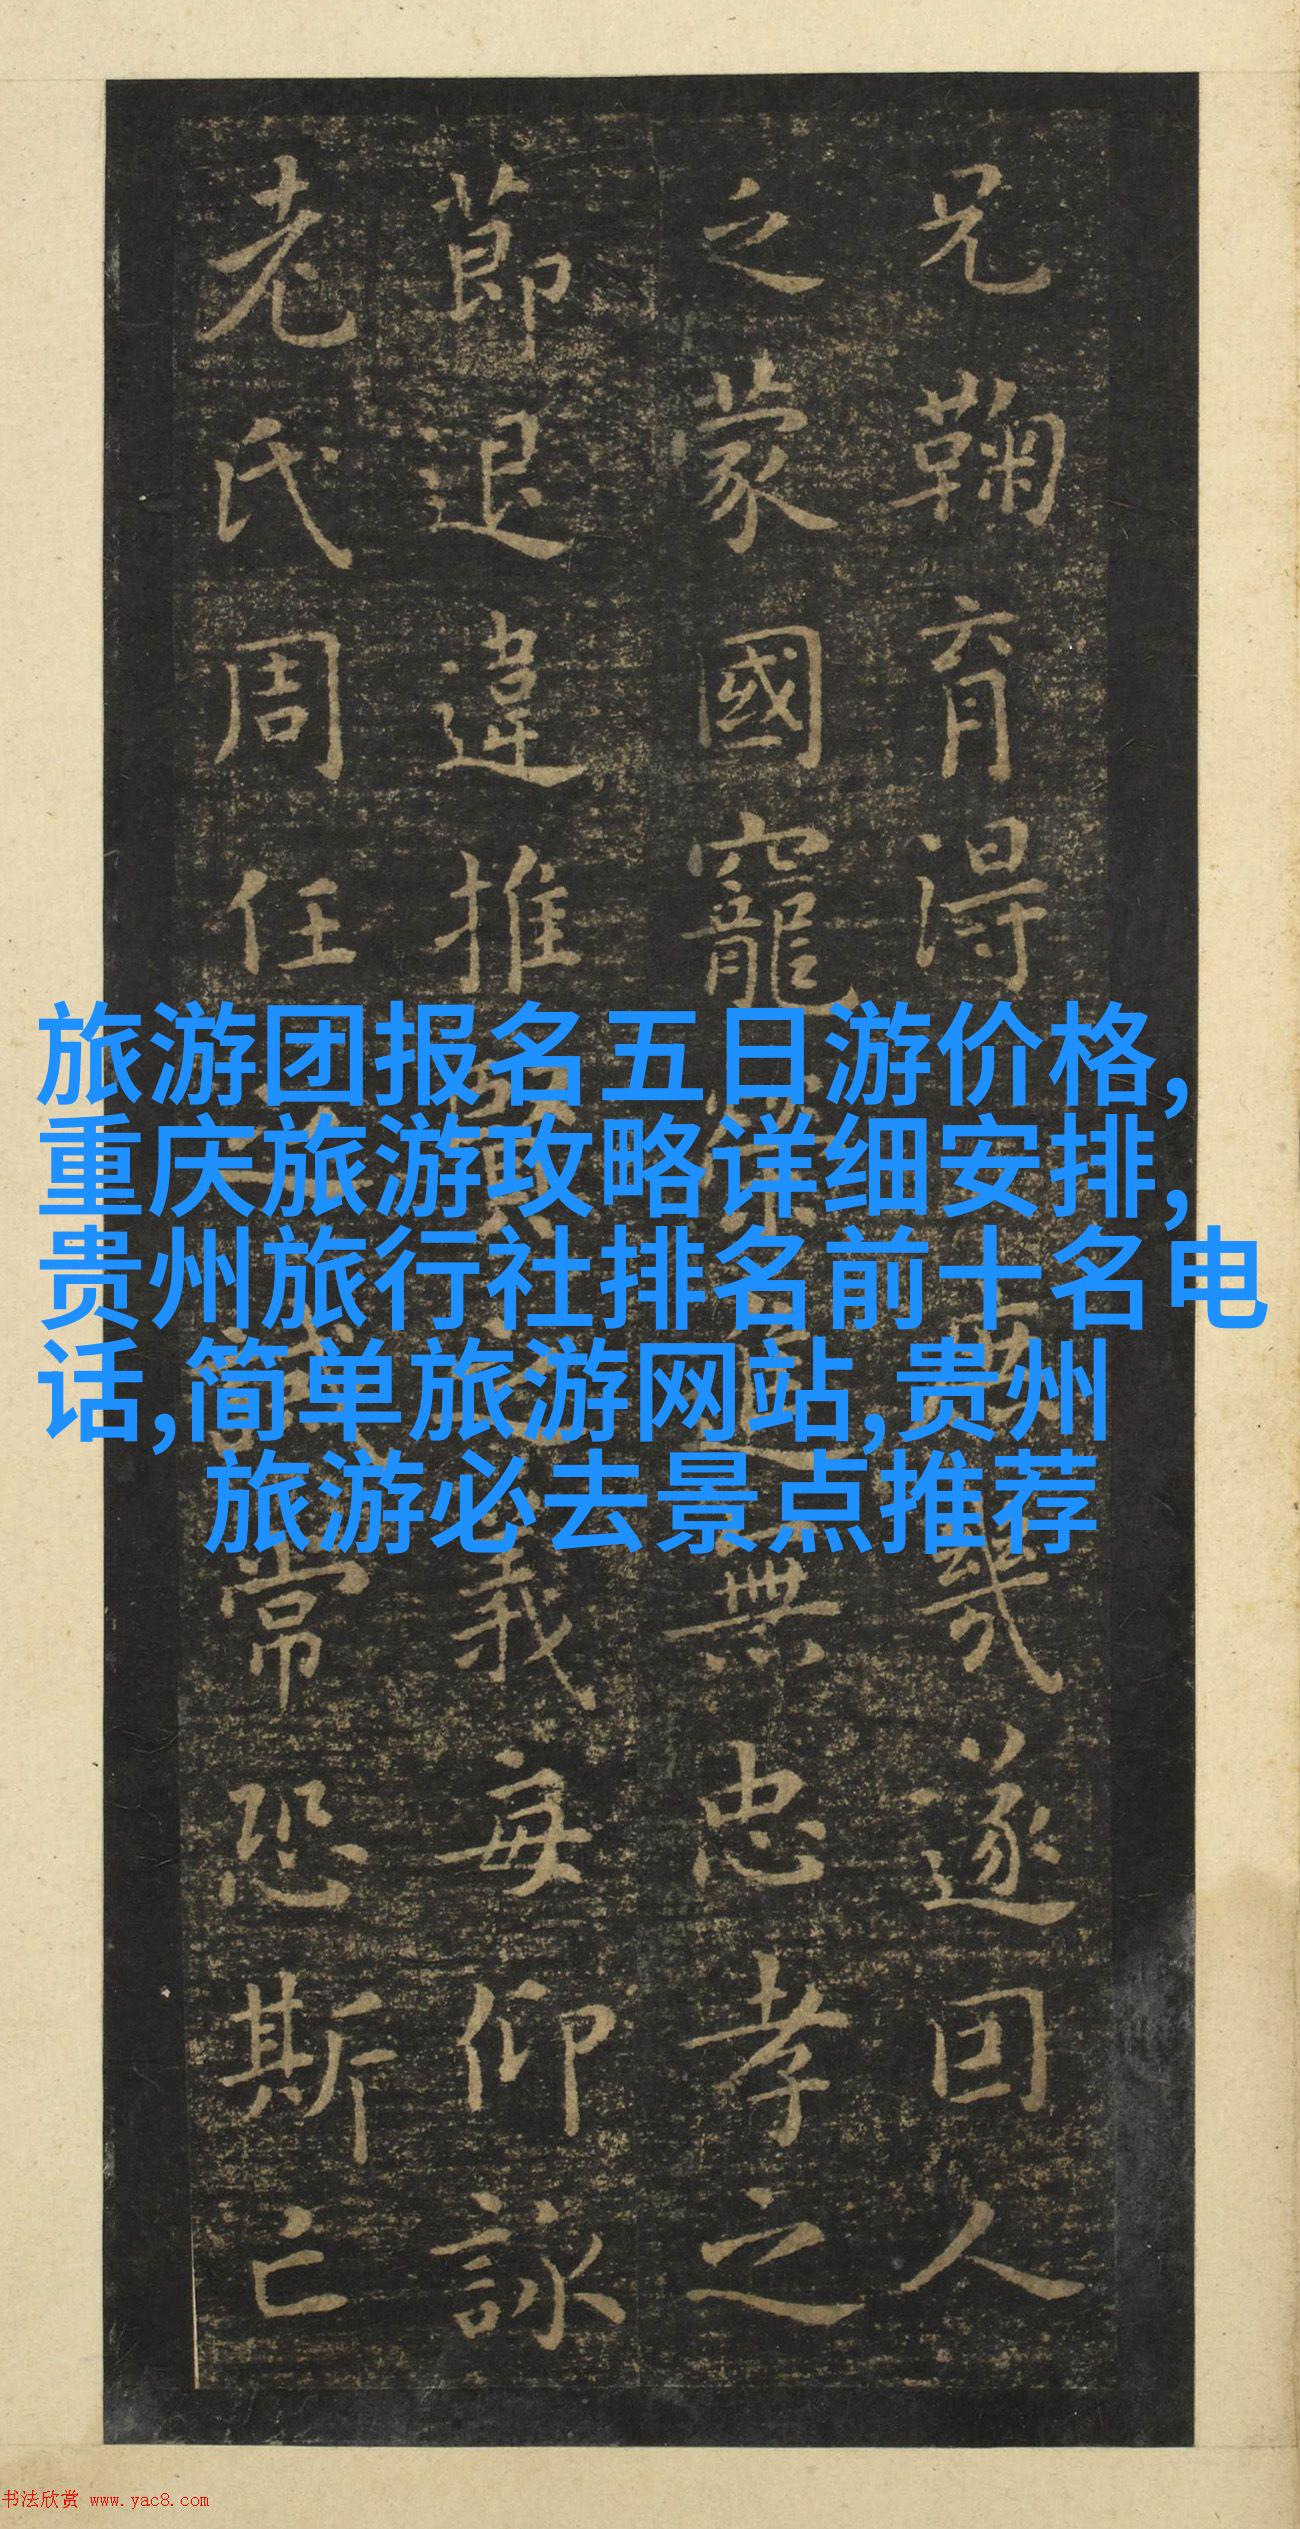 旅游团报名五日游价格,
重庆旅游攻略详细安排,
贵州旅行社排名前十名电
话,简单旅游网站,贵州
旅游必去景点推荐
兄鞠育得幾遂因人
之蒙國寵榮進無忠孝之
莭退違推賢之義每仰詠
老氏周任之誡常恐斯亡
书法欣赏 www.yac8.com